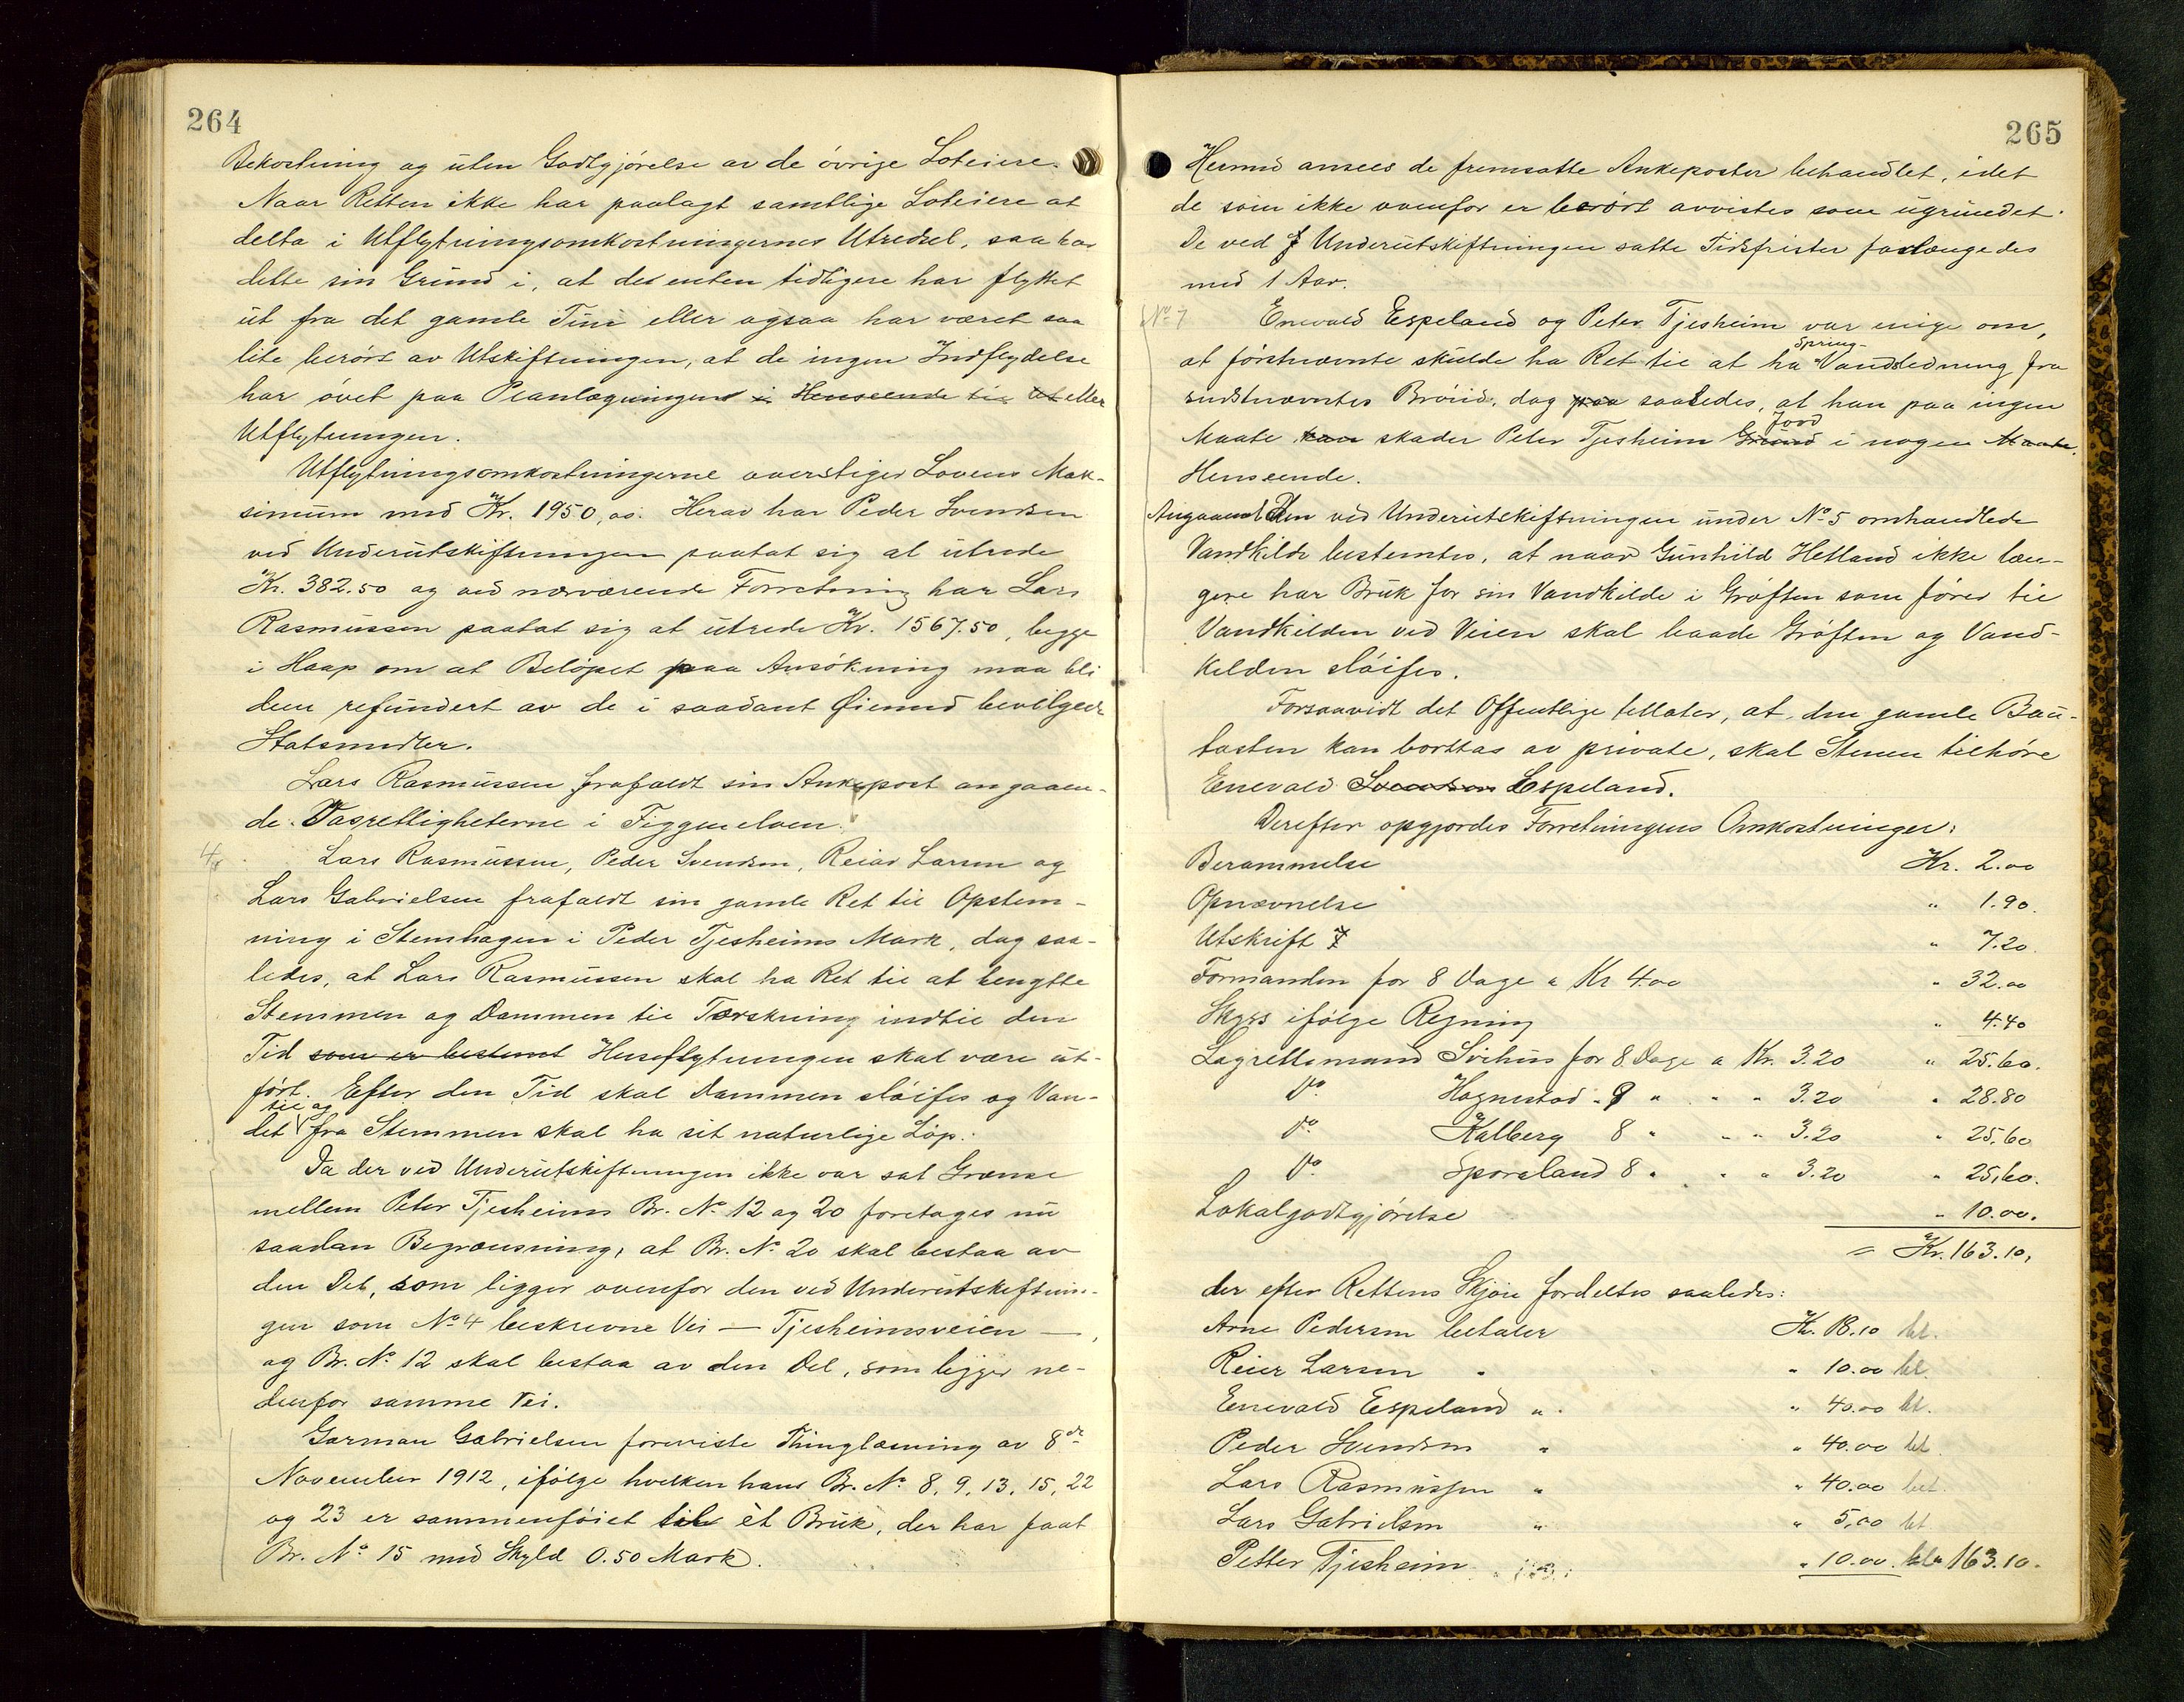 264
Bekostning og uten Godtgjörelse av de övrige Loteiere.
Naar Retten ikke har paalagt samtlige Loteiere at
delta i Utflytningsomkostningernes Utredsel, saa har
dette sin Grund i, at de enten tidligere har flyttet
ut fra det gamle Tun eller ogsaa har været saa
lite berört av Utskiftningen, at de ingen Indflydelse
har övet paa Planlægningen i Henseende til at eller
Utflytningen.
Utflytningsomkostningerne overstiger Lovens Mak-
simum med Kr. 1950,00. Herav har Peder Svendsen
ved Underutskiftningen paatat sig at utrede
Kr. 382.50 og ved nærværende Forretning har Lars
Rasmussen paatat sig at utrede Kr. 1567.50, begge
i Haap om at Belöpet paa Ansökning maa bli
dem refundert av de i saadant Øiemed bevilgede
Statsmidler.
Lars Rasmussen frafaldt sin Ankepost angaaen-
de Vasrettigheterne i Figgenelven.
4/ Lars Rasmussen, Peder Svendsen, Reiar Larsen og
Lars Gabrielsen frafaldt sin gamle Ret til Opstem-
ning i Stemhagen i Peder Tjesheims Mark, dog saa-
ledes, at Lars Rasmussen skal ha Ret til at benytte
Stemmen og Dammen til Tærskning indtil den
Tid som er bestemt Huseflytningen skal være ut-
fört. Efter den Tid skal Dammen slöifes og Van-
til og
det fra Stemmen skal ha sit naturlige Löp.
Da der ved Underutskiftningen ikke var sat Grænse
mellem Peter Tjesheims Br. No 12 og 20 foretages nu
saadan Begrænsning, at Br. No 20 skal bestaa av
den Del, som ligger ovenfor den ved Underutskiftnin-
gen som No 4 beskrevne Vei — Tjesheimsveien —,
og Br. No 12 skal bestaa av den Del, som ligger ne-
denfor samme Vei.
Gorman Gabrielsen foreviste Thinglæsning av 8de
November 1912, ifölge hvilken hans Br. No 8, 9, 13, 15, 22
og 23 er sammenföiet til èt Bruk, der har faat
Br. No 15 med Skyld 0.50 Mark.
265
Hermed ansees de fremsatte Ankeposter behandlet, idet
de som ikke ovenfor er berört avvistes som ugrundet.
De ved Underutskiftningen satte Tidsfrister forlængedes
med 1 Aar.
No 7 Enevald Espeland og Peter Tjesheim var enige om,
Spring-
at förstnævnte skulde ha Ret til at ha Vandledning fra
sidstnævntes Brönd, dog paa saaledes, at han paa ingen
Jord
Maate kan skader Peter Tjesheim Grund i nogen Maate.
Henseende.
Angaaend Den ved Underutskiftningen under No 5 omhandlede
Vandkilde bestemtes, at naar Gunhild Hetland ikke læn-
gere har Bruk for sin Vandkilde i Gröften som förer til
Vandkilden ved Veien skal baade Gröften og Vand-
kilden slöifes.
Forsaavidt det Offentlige tillater, at den gamle Bau-
tasten kan borttas av private, skal Stenen tilhöre
Enevald Svendsen Espeland.
Derefter opgjordes Forretningens Omkostninger:
Berammelse Kr. 2.00
Opnævnelse " 1.90.
Utskrift 7 " 7.20.
Formanden for 8 Dage a Kr 4.00 " 32.00
Skyss ifölge Regning " 4.40
Lagrettemand Svihus for 8 Dage a Kr. 3.20 " 25.60.
Do Hognestad " 9 " " " 3.20 " 28.80
do Kalberg 8 " " " 3.20 " 25.60
Do Sporaland 8 " " " 3.20 " 25.60.
Lokalgodtgjörelse " 10.00.
= Kr. 163.10,
der efter Rettens Skjön fordeltes saaledes:
Arne Pedersen betaler Kr. 18.10 bet.
Reier Larsen " " 10.00 bet.
Enevald Espeland " " 40.00 bet.
Peder Svendsen " " 40.00 bet.
Lars Rasmussen " " 40.00 bet.
Lars Gabrielsen " " 5.00 bet
Petter Tjesheim " 10.00. bet 163.10.